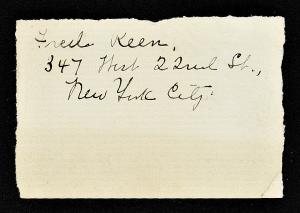 Freda Keen,
347 West 22nd St.,
New York City.